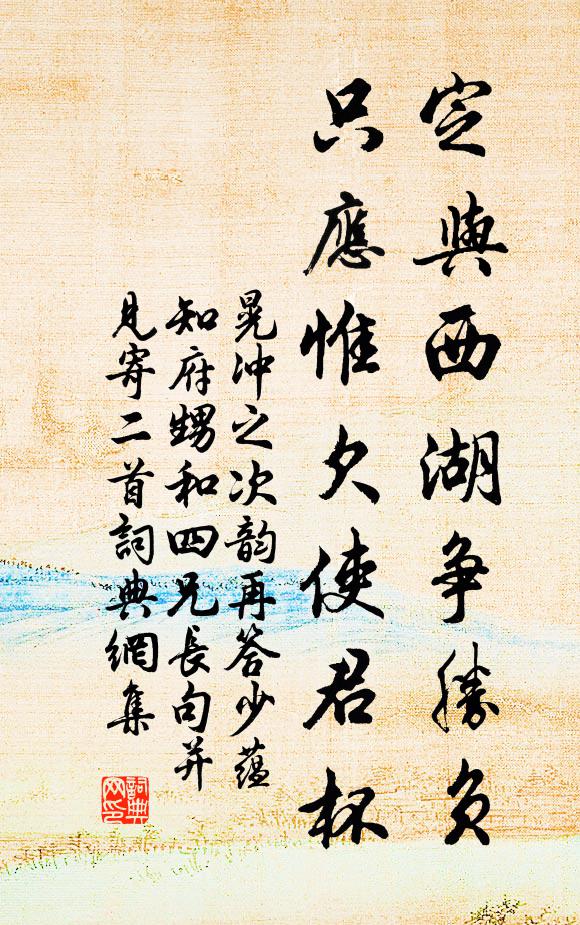 定與西湖爭勝負
只應惟欠使君杯
晁冲之次韵再答少蘊
知府甥和四兄長句并
見寄二首詞典網集
詞典
网印